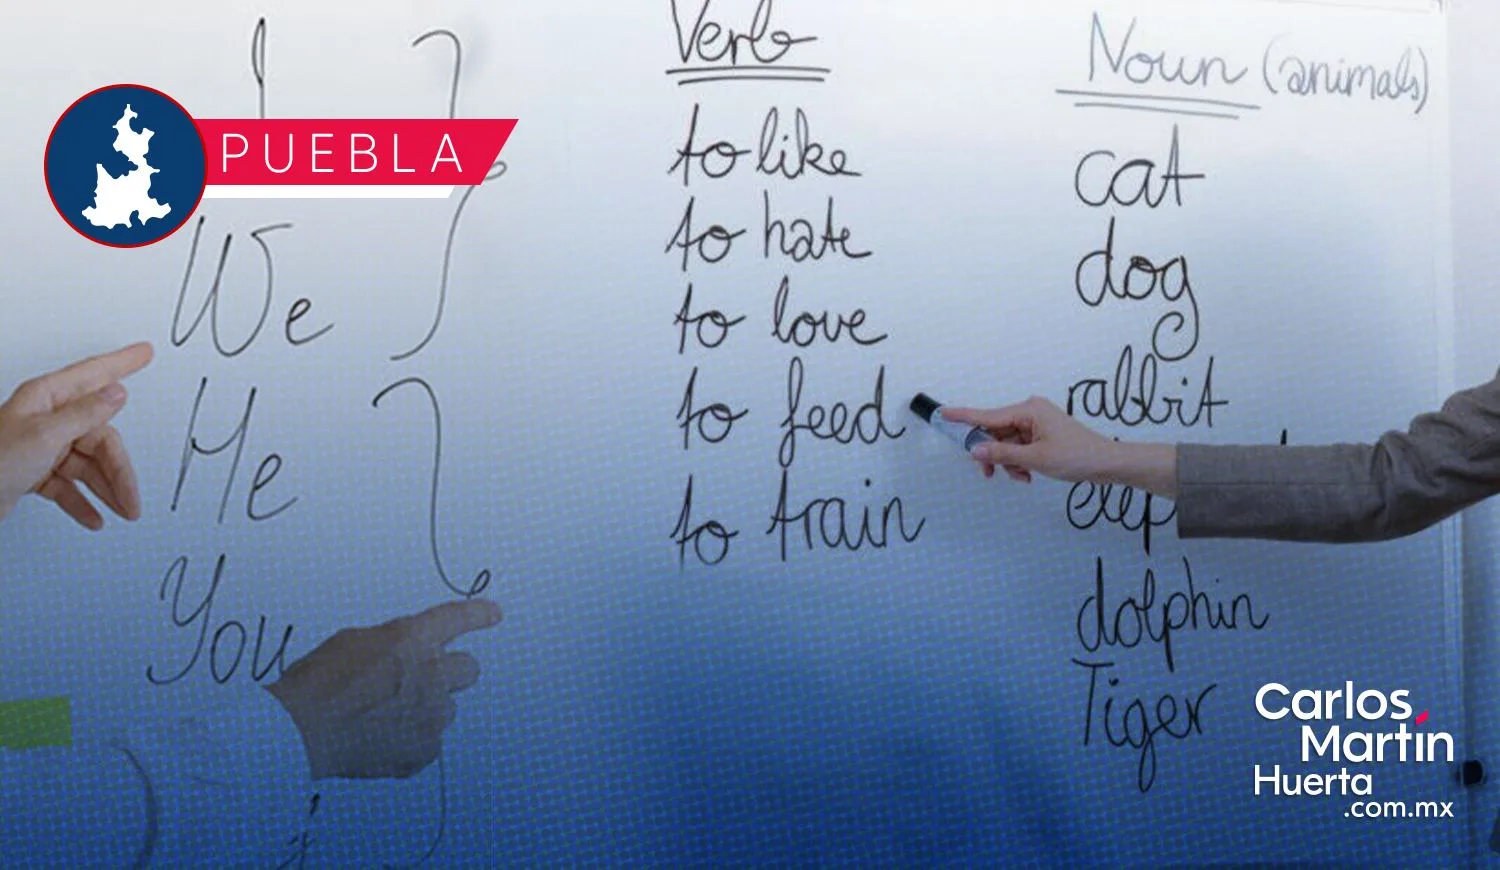 I
PUEBLA
We
He
You
Verb
to like
to hate
to love
to feed
to train
Noun (animals)
cat
dog
rabbit
dolphin
Tiger
Carlos
Martín
Huerta
.com.mx